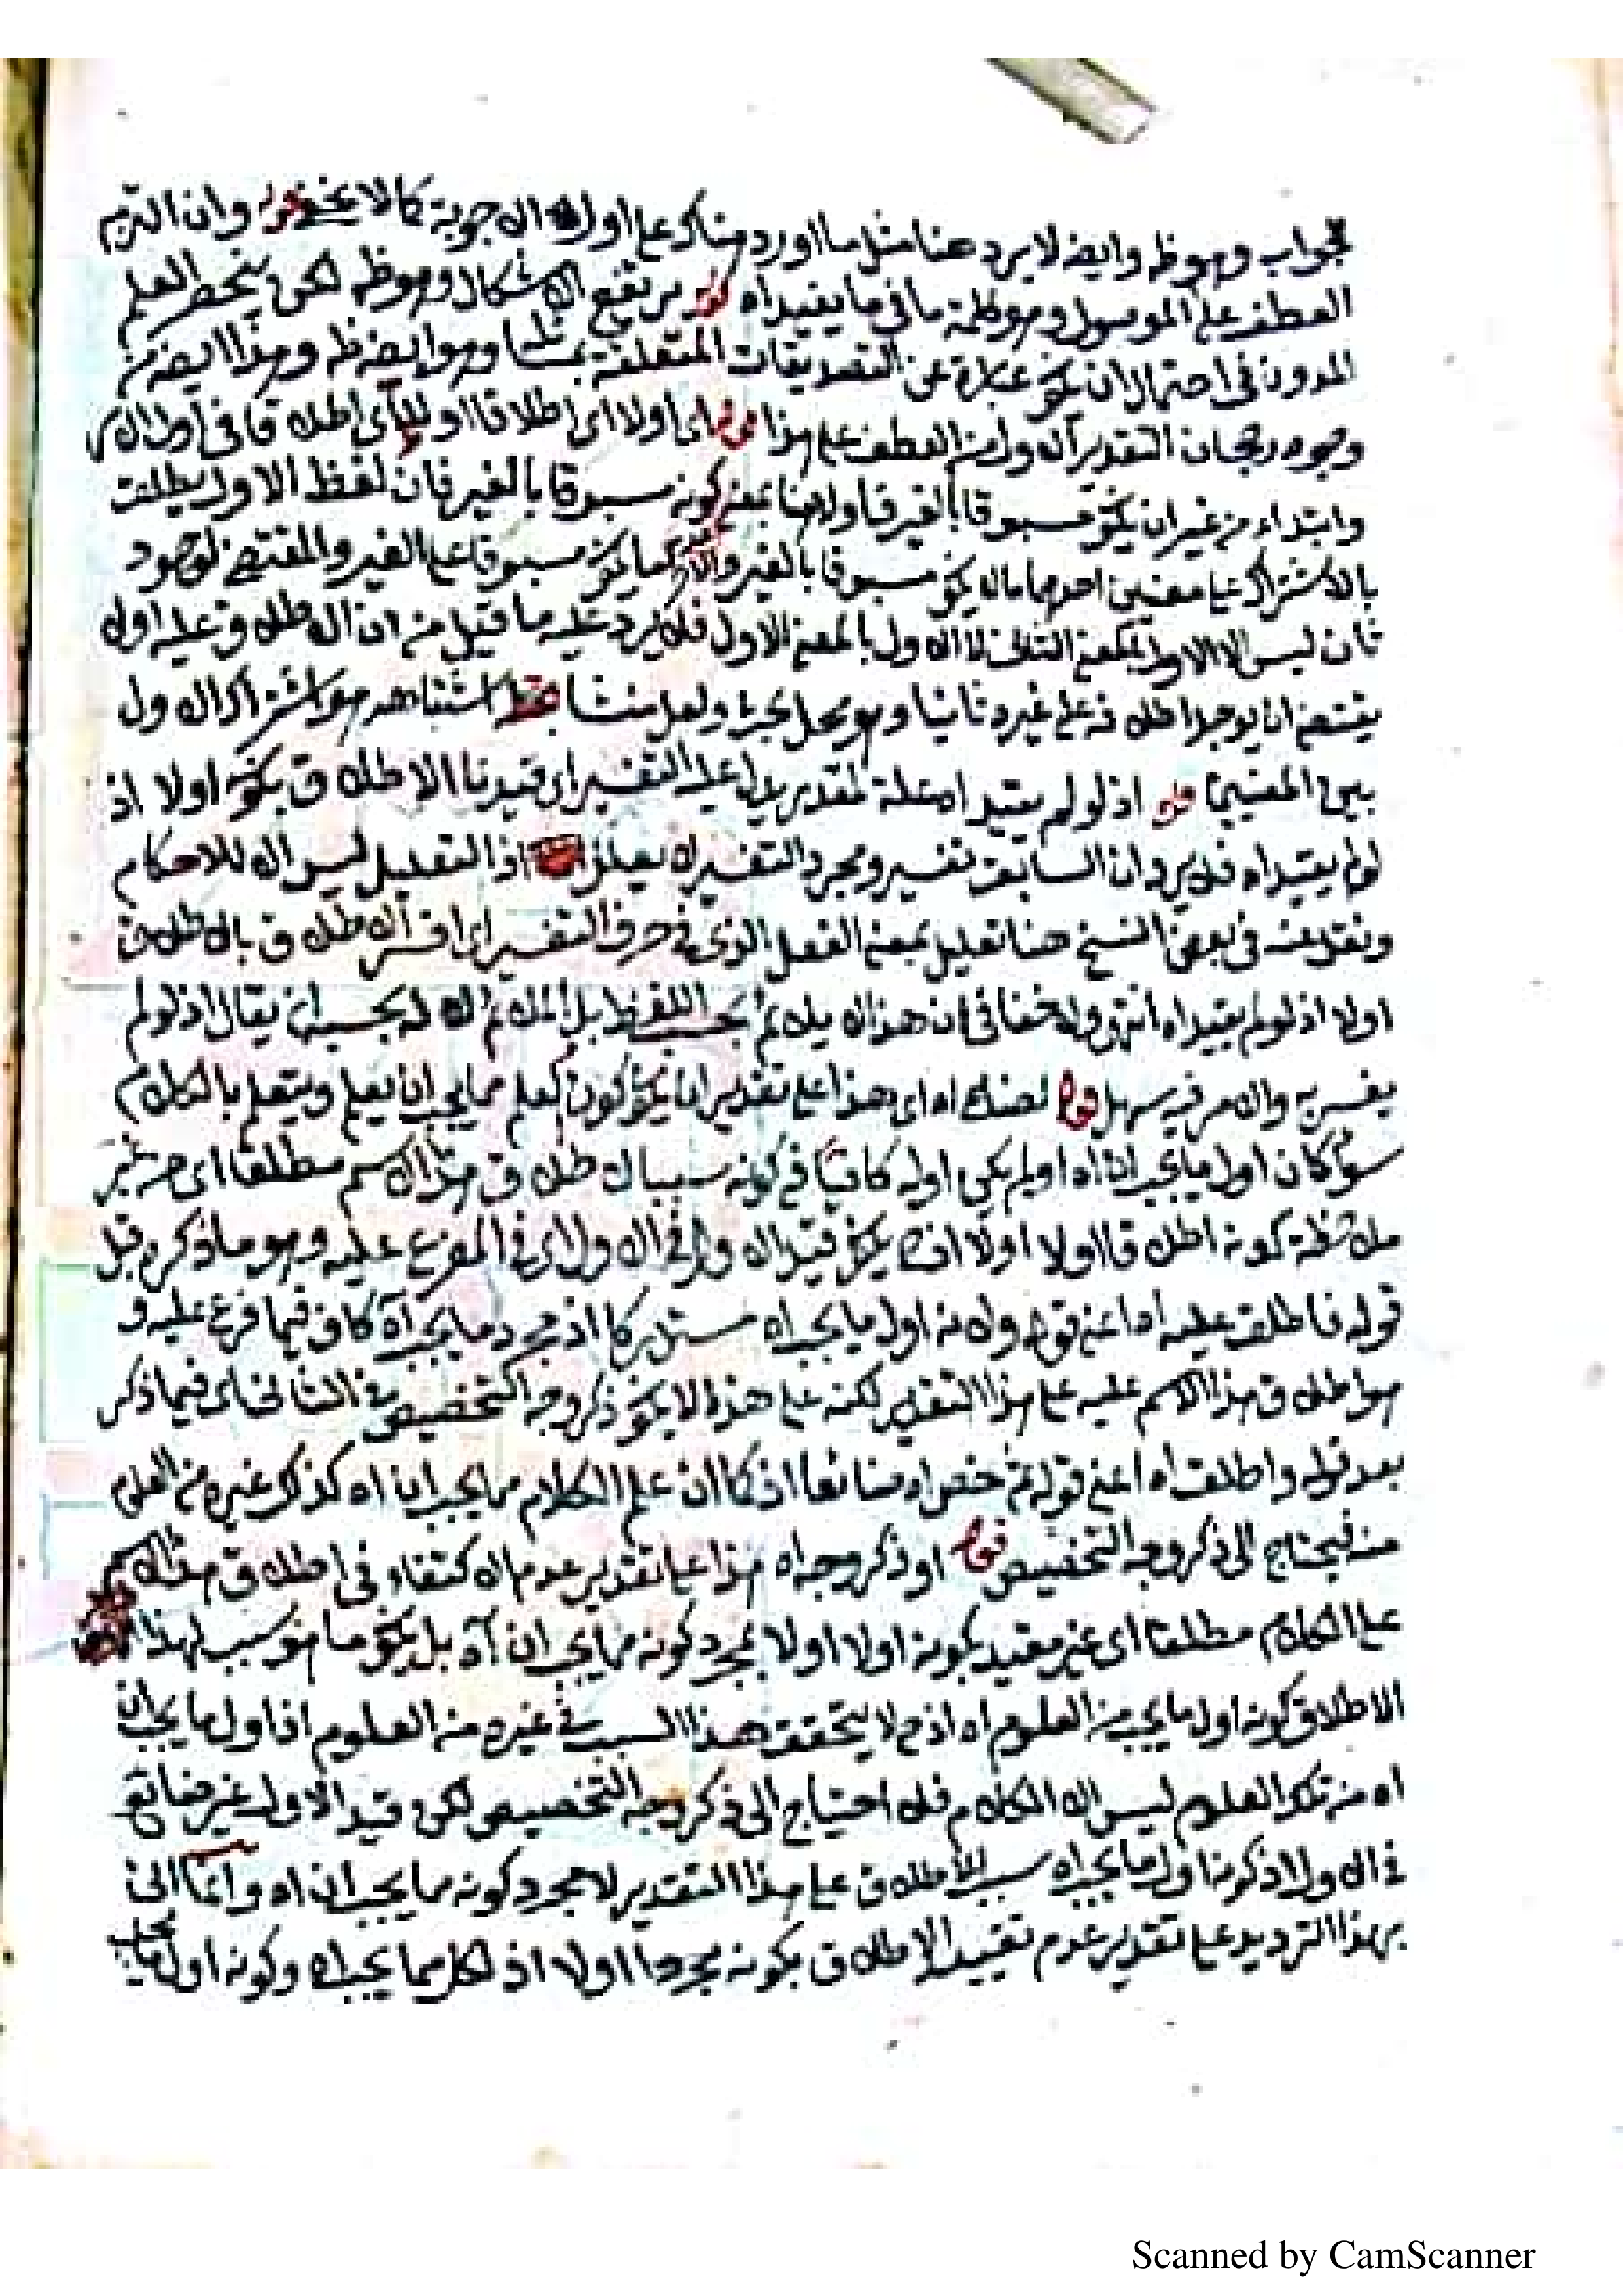 وهو ظ وايضا لا يرد هنا مثل ما اورد هناك على اولئك الاجوبة كما لا يخفى قوله وان التزم
العطف على الموصول وهو كلمة ما في ما يفيد اه قوله يرتفع الاشكال وهو ظ لكن ينحصر العلم
المدون في احتمال ان يكون عبارة عن التصديقات المتعلقة وهو ايضا ظ وهذا ايضا من
وجوه رجحان التقدير الاول العطف على هذا قوله اى اولا اى اطلاقا اوليا اى اطلاقا في اول الامر
وابتداء من غير ان يكون مسبوقا بالغير فاولا هنا بمعنى كونه مسبوقا بالغير فان لفظ الاول يطلق
بالاشتراك على معنيين احدهما ما لا يكون مسبوقا بالغير والاخر ما يكون مسبوقا على الغير والمقتضى لوجود
ثان ليس الا الاول بالمعنى الثانى لا الاول بالمعنى الاول فلا يرد عليه ما قيل من ان الاطلاق عليه اولا
يقتضى ان يوجد اطلاقه على غيره ثانيا وهو محل بحث ولعل منشأ اشتباهه هو اشتراك الاول
بين المعنيين قوله اذ لو لم يقيد اه علة لمقدر يدل عليه التفسير اى قيدنا الاطلاق بكونه اولا اذ
لو لم يقيد اه فلا يرد ان السابق تفسير ومجرد التفسير لا يعلل اذ التعليل ليس الا للاحكام
في بعض النسخ هنا تعليل بمعنى الفعل الذى في حرف التفسير اى افسر الاطلاق بالاطلاق
اولا اذ لو لم يقيد اه انتهى ولا خفا في ان هذا لا يلائم بحسب اللفظ بل الملائم له بحسبه ان يقال اذ لو لم
يفسر به والامر فيه سهل قوله لضاع اه اى هذا على تقدير ان يكون كون العلم مما يجب ان يعلم ويتعلم بالكلام
سواء كان اول ما يجب ان اه او لم يكن اولا كافيا في كونه سببا لاطلاق هذا الاسم مطلقا اى من غير
ملاحظة كونه اطلاقا اولا اولا يكون قيد الاول في الاول اى في المفرع عليه وهو ما ذكره قبل
قوله فاطلق عليه اه اعنى قوله ولانه اول ما يجب اه مستدركا اذ مجرد ما يجب اه كاف فيما فرع عليه و
هو اطلاق هذا الاسم عليه على هذا التقدير لكنه على هذا لا يكون ذكر وجه التخصيص في الثانى اى فيما ذكر
بعد قوله واطلق اه اعنى قوله ثم خص اه ضائعا اذ كما ان علم الكلام مما يجب ان اه كذلك غيره من العلم
منه فيحتاج الى ذكر وجه التخصيص قوله او ذكر وجه اه هذا على تقدير عدم الاكتفاء في اطلاق هذا الاسم
على الكلام مطلقا اى غير مقيد بكونه اولا اولا بمجرد كونه مما يجب ان اه بل يكون ما هو سبب لهذا
الاطلاق كونه اول ما يجب من العلوم اه اذ ح لا يتحقق هذا السبب في غيره من العلوم اذ اول ما يجب ان
اه من تلك العلوم ليس الا الكلام فلا احتياج الى ذكر وجه التخصيص لكن قيد الاول غير ضائع
في الاول اذ كونه اول ما يجب اه سبب للاطلاق على هذا التقدير لا مجرد كونه مما يجب ان اه وانما اتى
بهذا الترديد على تقدير عدم تقييد الاطلاق بكونه اولا اذ لكل مما يجب اه وكونه اول ما يجب
Scanned by CamScanner